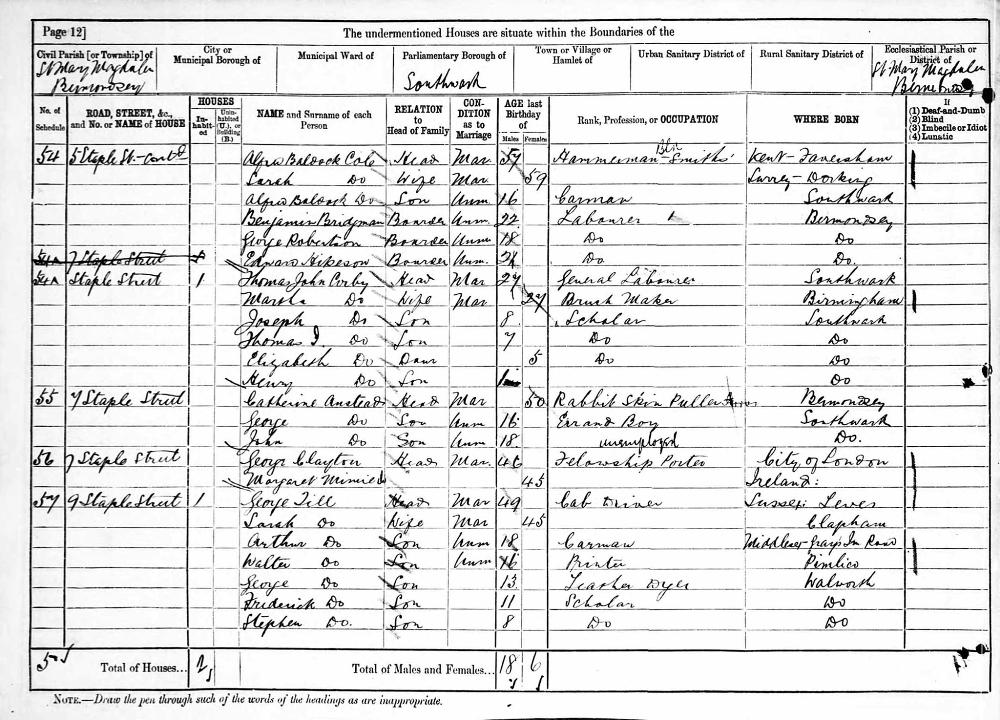 Page 12] The undermentioned Houses are situate within the Boundaries of the
Civil Parish [or Township] of City or Municipal Borough of Municipal Ward of Parliamentary Borough of Town or Village or Hamlet of Urban Sanitary District of Rural Sanitary District of Ecclesiastical Parish or District of
St Mary Magdalen Bermondsey Southwark St Mary Magdalen
No. of Schedule ROAD, STREET, &c., and No. or NAME of HOUSE HOUSES Inhabited Uninhabited (U.), or Building (B.) NAME and Surname of each Person RELATION to Head of Family CONDITION as to Marriage AGE last Birthday of Males Females Rank, Profession, or OCCUPATION WHERE BORN If (1) Deaf-and-Dumb (2) Blind (3) Imbecile or Idiot (4) Lunatic
54 5 Staple St - Contd Alfred Baldock Cole Head Mar 57 Hammerman - Smiths' Kent - Faversham
Sarah Do Wife Mar 59 Surrey - Dorking
Alfred Baldock Do Son Unm 16 Carman Southwark
Benjamin Bridgman Boarder Unm 22 Labourer Bermondsey
George Robertson Boarder Unm 18 Do Do
7 Staple Street Edward Boarder Unm. Do Do.
Staple Street 1 Thomas John Corby Head Mar 27 General Labourer Southwark
Martha Do Wife Mar 27 Brush Maker Birmingham
Joseph Do Son 8 Scholar Southwark
Thomas J. Do Son 7 Do Do
Elizabeth Do Daur 5 Do Do
Henry Do Son Do
55 7 Staple Street Catherine Anstead Head Mar 50 Rabbit Skin Puller Bermondsey
George Do Son Unm 16 Errand Boy Southwark
John Do Son Unm 18 unemployed Do.
56 7 Staple Street George Clayton Head Mar. 46 Fellowship Porter City of London
Margaret 45 Ireland:
57 9 Staple Street 1 George Till Head Mar 49 Cab Driver Sussex: Lewes
Sarah Do Wife Mar 45 Clapham
Arthur Do Son Unm 18 Carman Middlesex - Grays Inn Road
Walter Do Son Unm 16 Printer Pimlico
George Do Son 13 Leather Dyer Walworth
Frederick Do Son 11 Scholar Do
Stephen Do. Son 8 Do Do
Total of Houses... 2 Total of Males and Females... 18 6
NOTE.—Draw the pen through such of the words of the headings as are inappropriate.